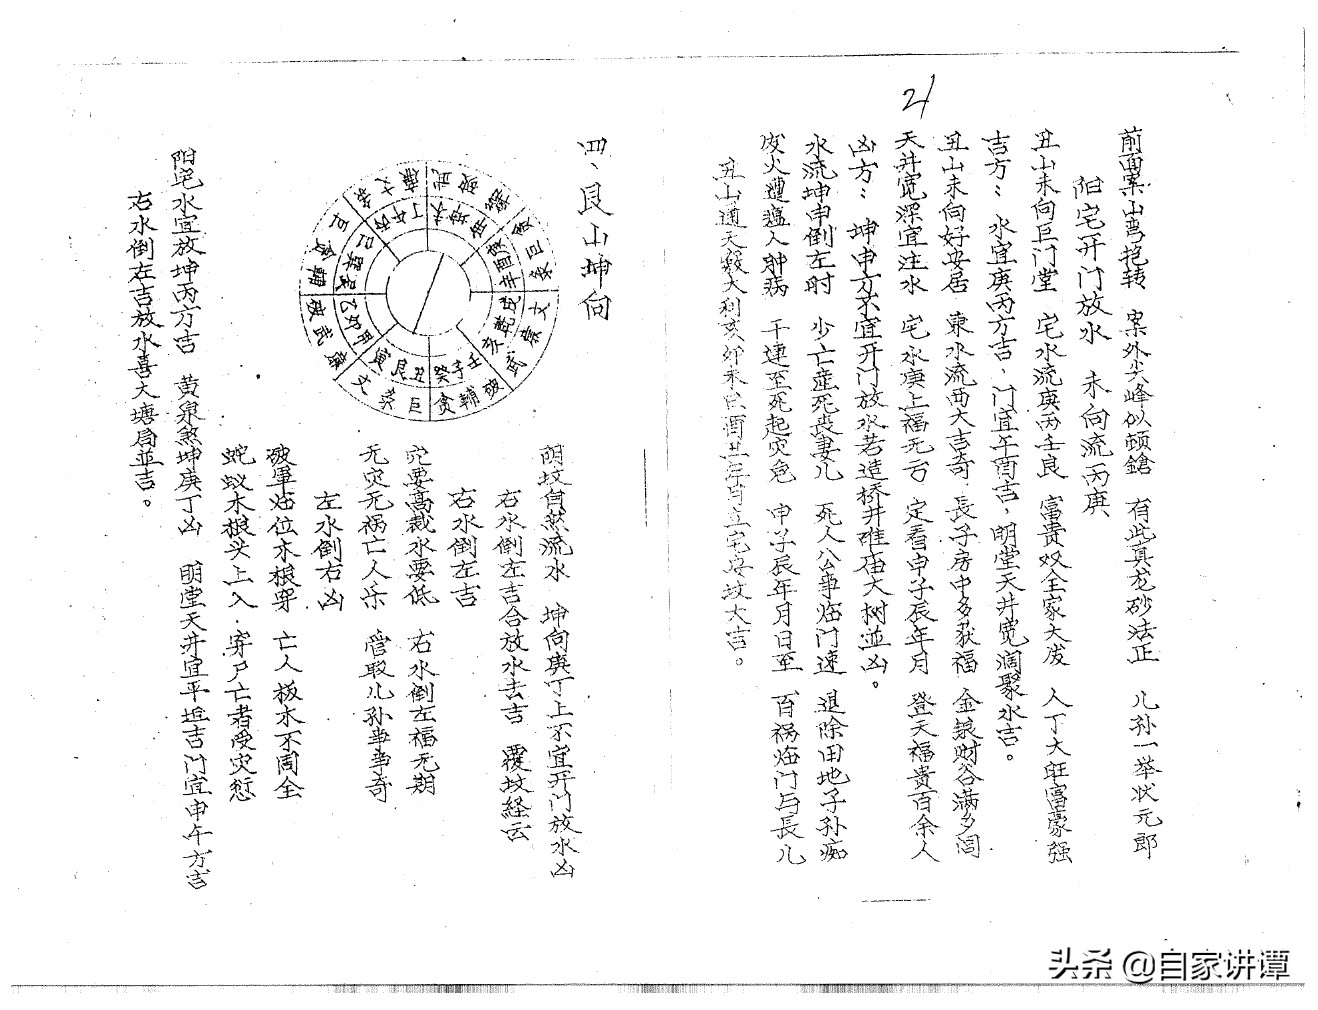 21
前面案山弯抱转 案外尖峰似顿鎗 有此真龙砂法正 儿孙一举状元郎
阳宅开门放水 未向流丙庚
丑山未向巨门堂 宅水流庚丙壬良 富贵双全家大发 人丁大旺富豪强
吉方：水宜庚丙方吉、门宜午酉吉，明堂天井宽阔聚水吉。
丑山未向好安居 东水流西大吉奇 長子房中多获福 金银财谷满多间
天井宽深宜注水 宅水庚上福无亏 定看申子辰年月 登天福贵百余人
凶方：坤申方不宜开门放水若造桥井碓庙大树並凶。
水流坤申倒左时 少亡産死丧妻儿 死人公事临门速 退除田地子孙痴
废火遭瘟人射病 干連至死起灾危 申子辰年月日至 百祸临门与長儿
丑山通天窍大利亥卯未巳酉丑年月立宅安坟大吉。
四、艮山坤向
壬子癸
丑艮寅
甲卯乙
辰巽巳
丙午丁
未坤申
庚酉辛
戌乾亥
貪輔破
巨
文廉武破輔貪巨
文廉
武破輔貪巨
文廉武
荫坟自煞流水 坤向庚丁上不宜开门放水凶
右水倒左吉合放水去吉 覆坟経云
右水倒左吉
穴要高裁水要低 右水倒左福无期
无灾无祸亡人乐 管取儿孙事事奇
左水倒右凶
破軍临位木根穿 亡人板木不周全
蛇蚁木根头上入 穿尸亡者受灾愆
阳宅水宜放坤丙方吉 黄泉煞坤庚丁凶 明堂天井宜平坦吉门宜申午方吉
右水倒左吉放水喜大塘局並吉。
头条 @自家讲谭